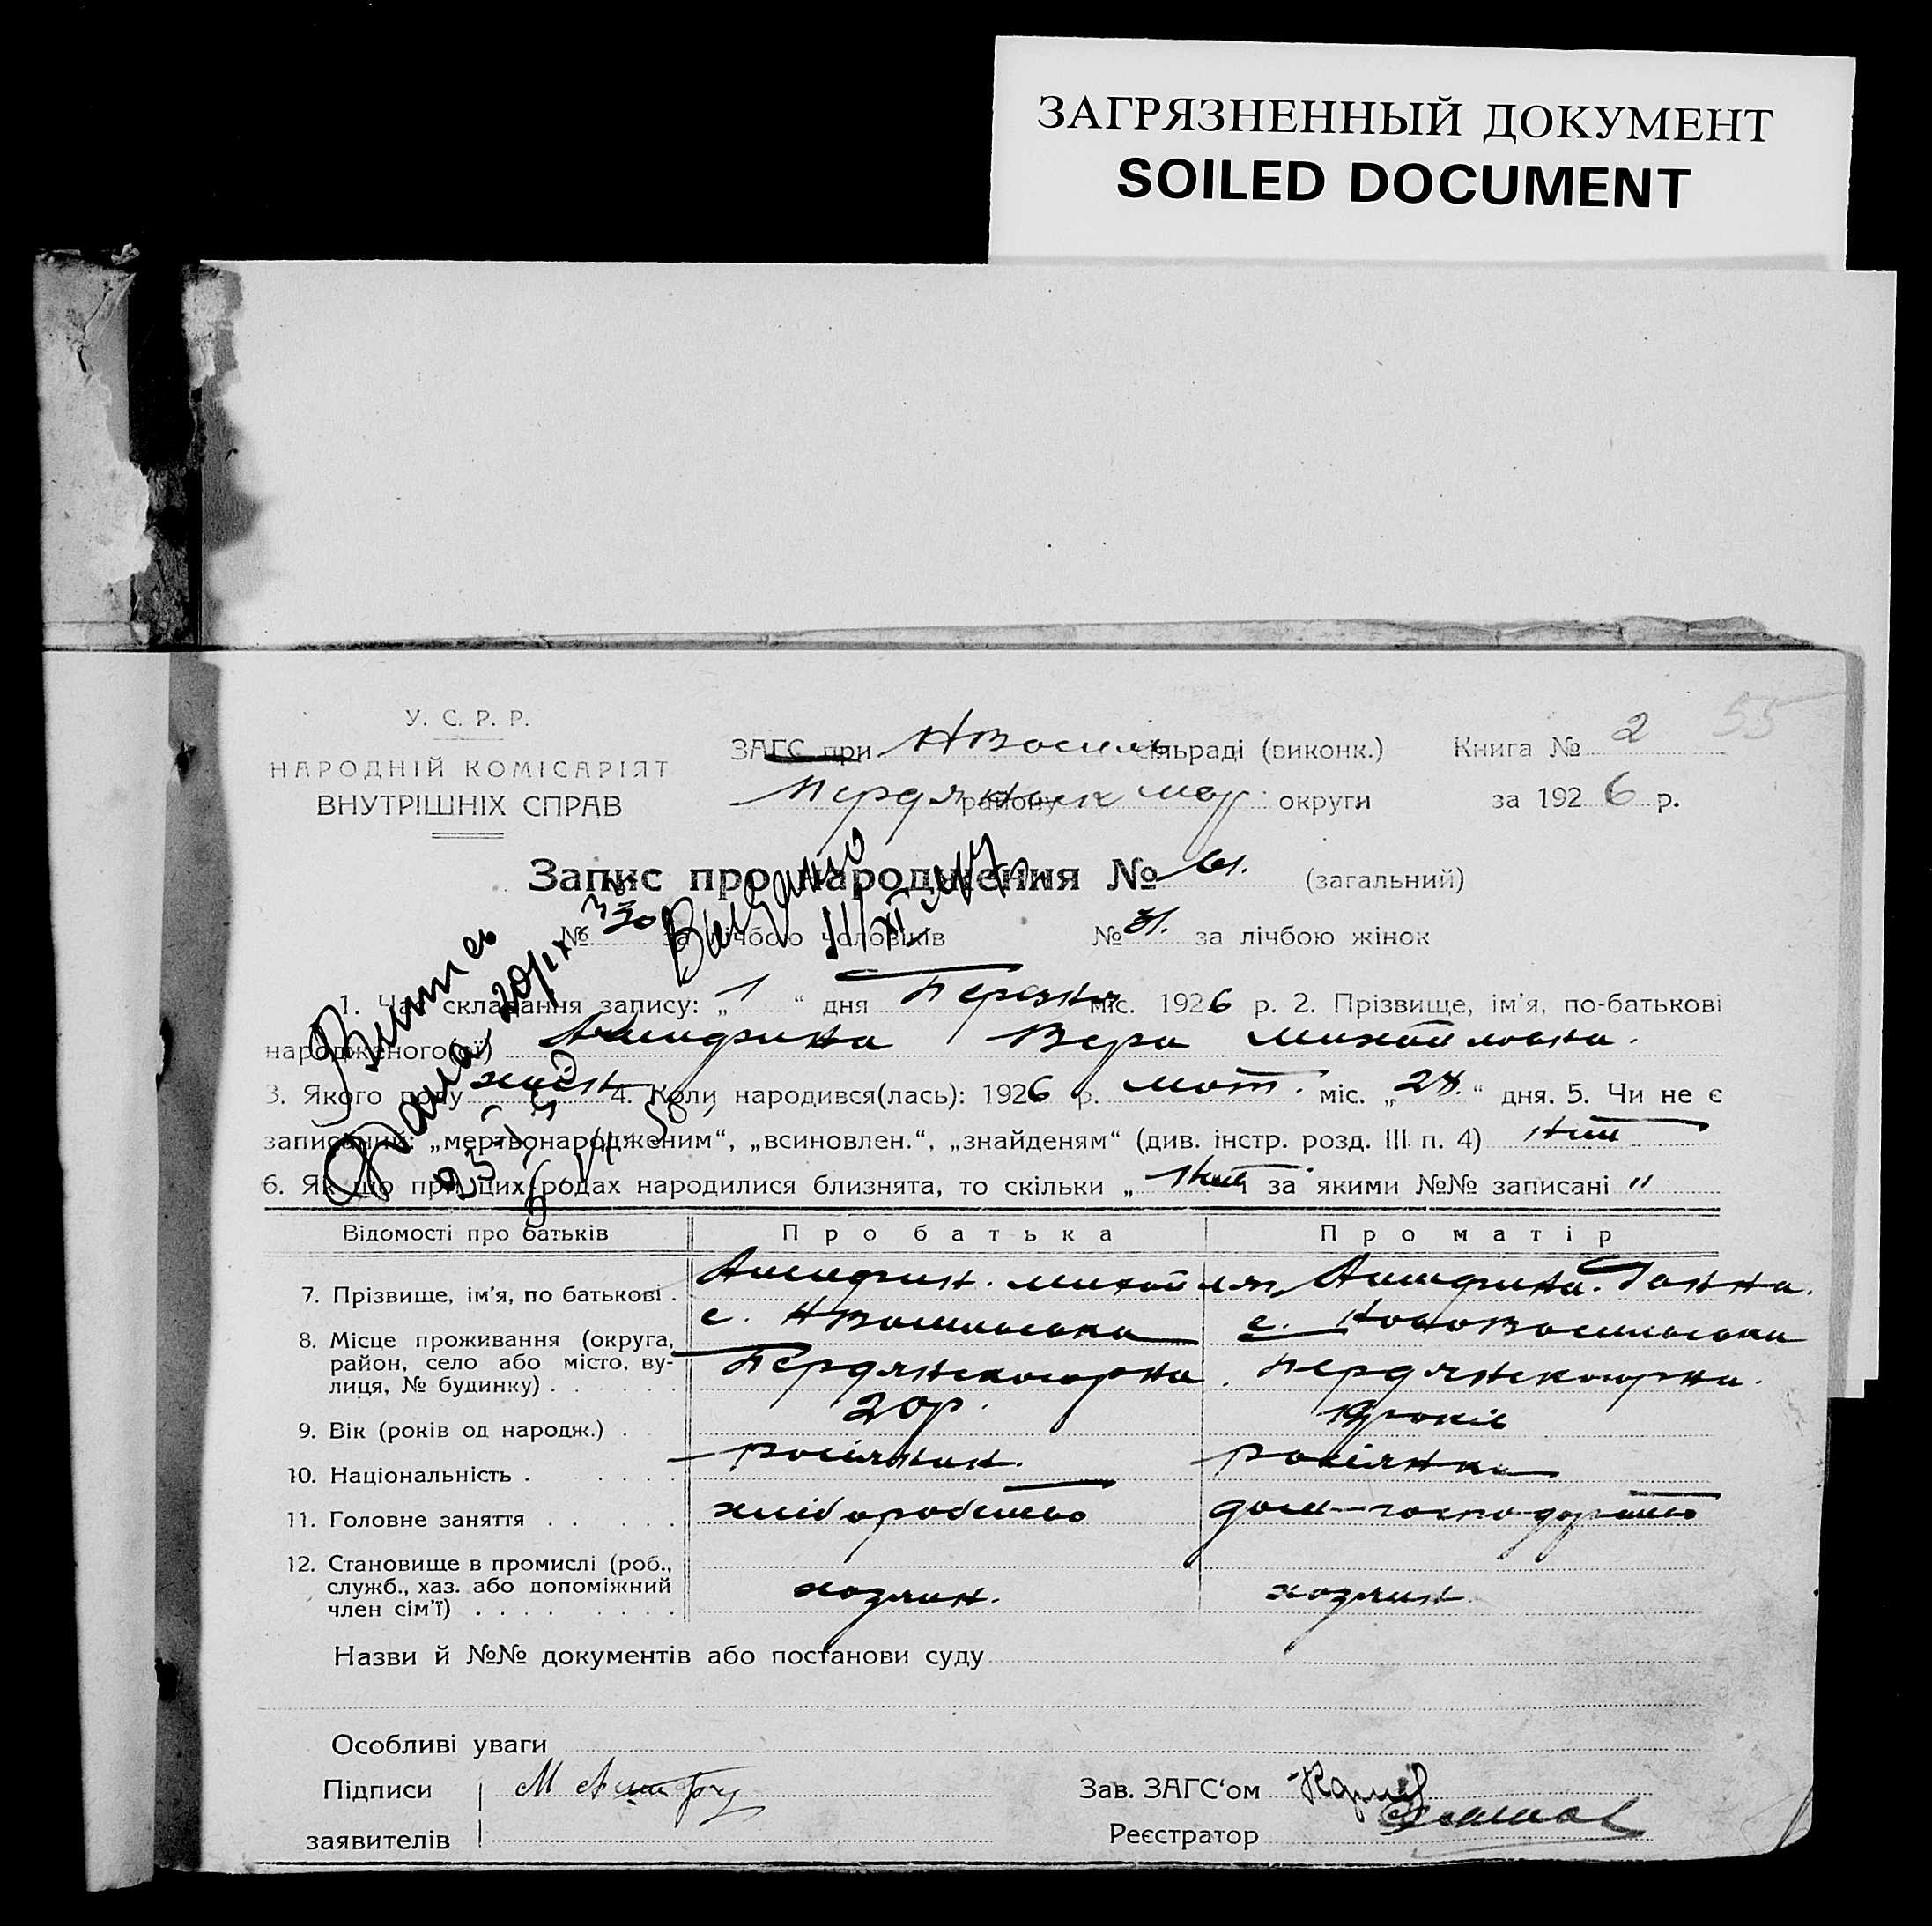 ЗАГРЯЗНЕННЫЙ ДОКУМЕНТ
SOILED DOCUMENT
55
У. С. Р. Р.
НАРОДНІЙ КОМІСАРІЯТ
ВНУТРІШНІХ СПРАВ
ЗАГС при сільраді (виконк.) Книга № 2
району округи за 1926 р.
Запис про народження № 61. (загальний)
№ за лічбою чоловіків № 31. за лічбою жінок
1. Час складання запису: „ 1 “ дня Березня міс. 1926 р. 2. Прізвище, ім'я, по-батькові
народженого(ої) Вера Михайловна.
3. Якого полу жін 4. Коли народився(лась): 1926 р. міс. „28.“ дня. 5. Чи не є
записаний: „мертвонародженим“, „всиновлен.“, „знайденям“ (див. інстр. розд. III п. 4) Ні
6. Як що при цих родах народилися близнята, то скільки „ за якими №№ записані "
Відомості про батьків Про батька Про матір
7. Прізвище, ім'я, по батькові . Михайло Ганна.
8. Місце проживання (округа, с. НВасилівка с. НовоВасилівка
район, село або місто, ву-
лиця, № будинку) . . . . . Бердянського р-ну. Бердянського р-ну.
9. Вік (років од народж.) . 20р. 19 років
10. Національність . . . . . росіянин. росіянка
11. Головне заняття . . . . . хліборобство дом-господарство
12. Становище в промислі (роб.,
служб., хаз. або допоміжний
член сім'ї) . . . . . . . . хозяин. хозяин
Назви й №№ документів або постанови суду
Особливі уваги
Підписи
заявителів
Зав. ЗАГС'ом
Реєстратор
Видано